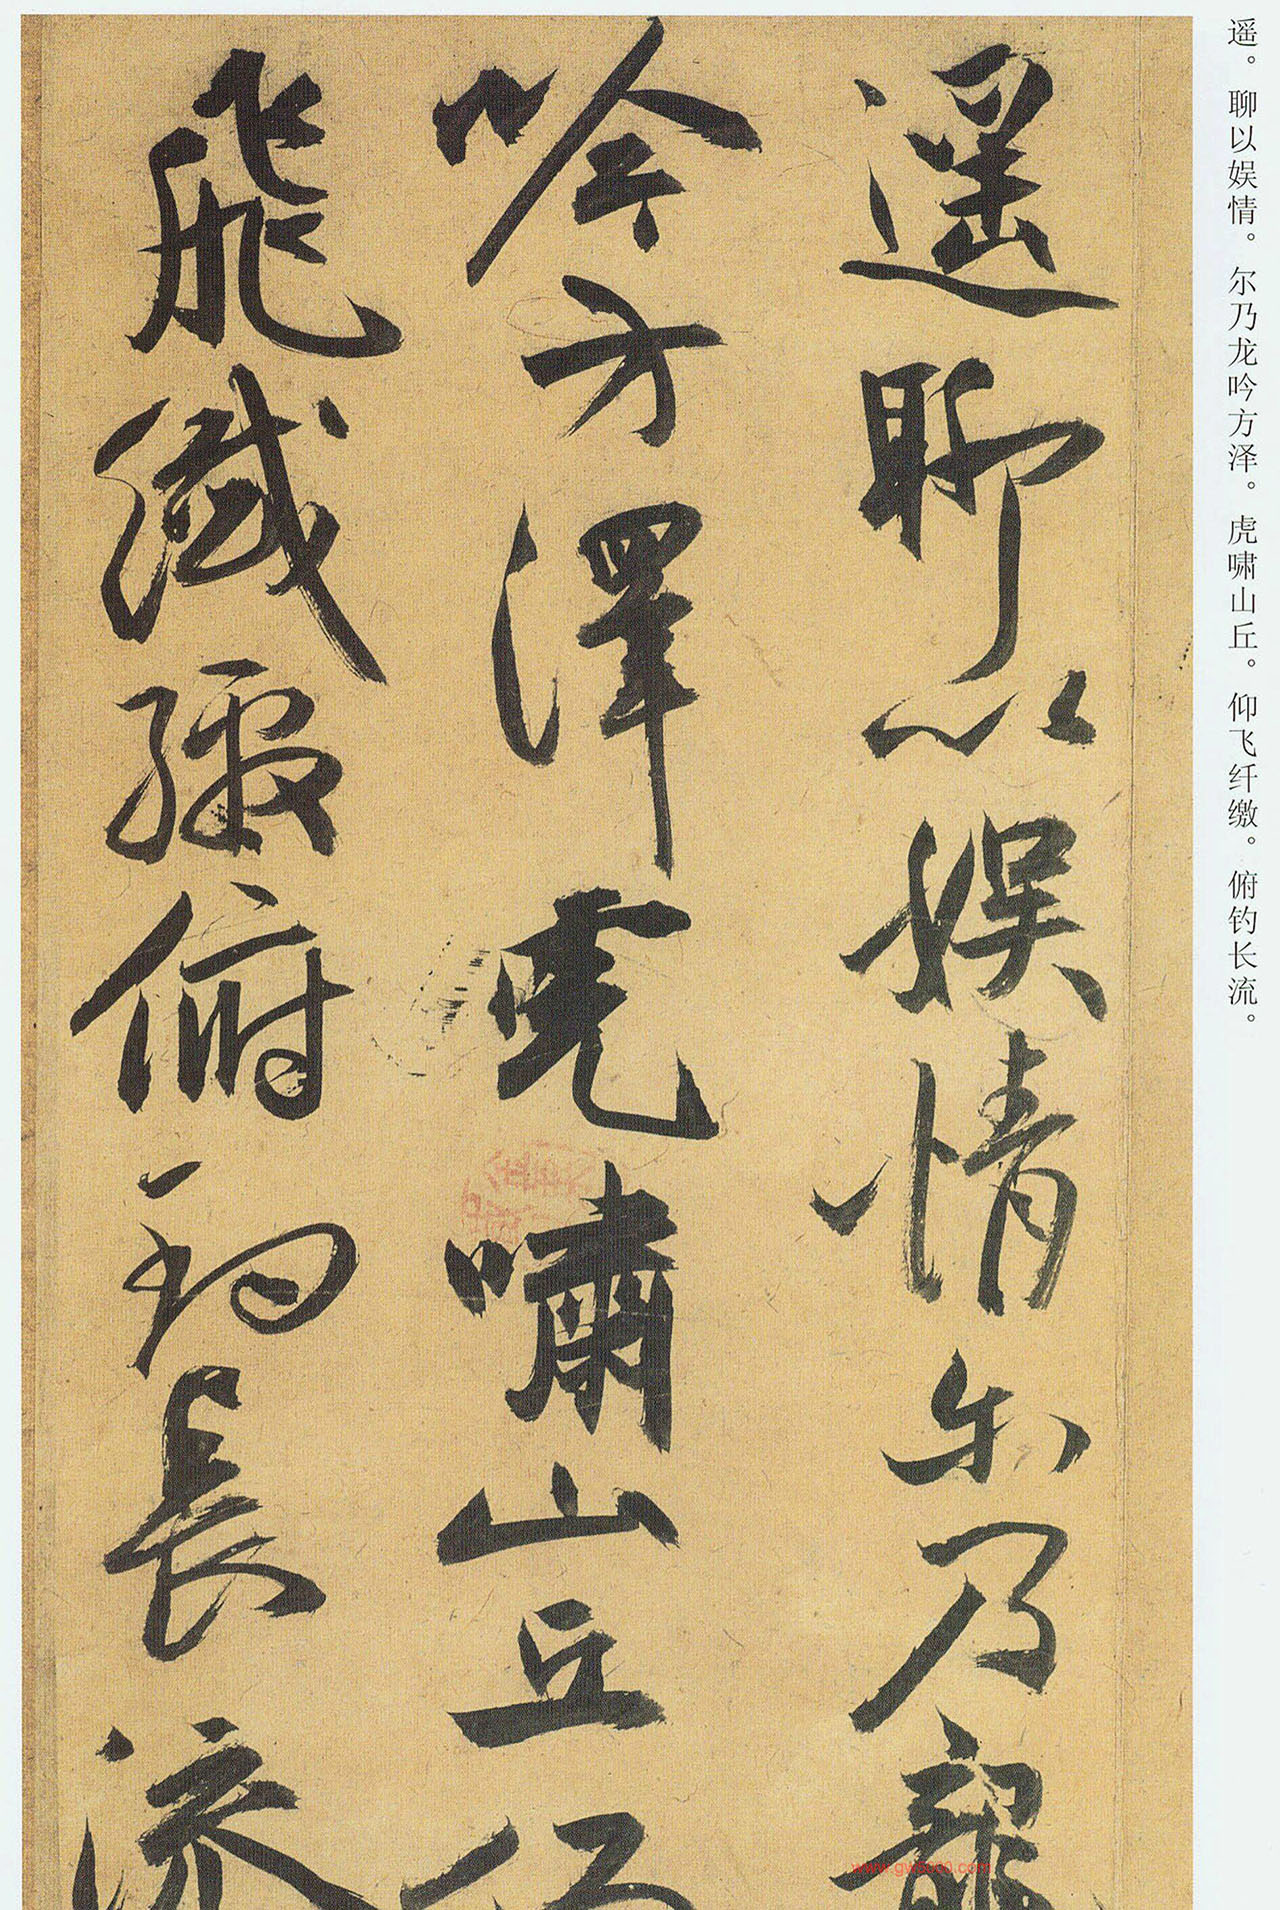 遥。聊以娱情。尔乃龙吟方泽。虎啸山丘。仰飞纤缴。俯钓长流。
遥聊以娱情尔乃龍
吟方澤虎嘯山丘仰
飛纖繳俯釣長流